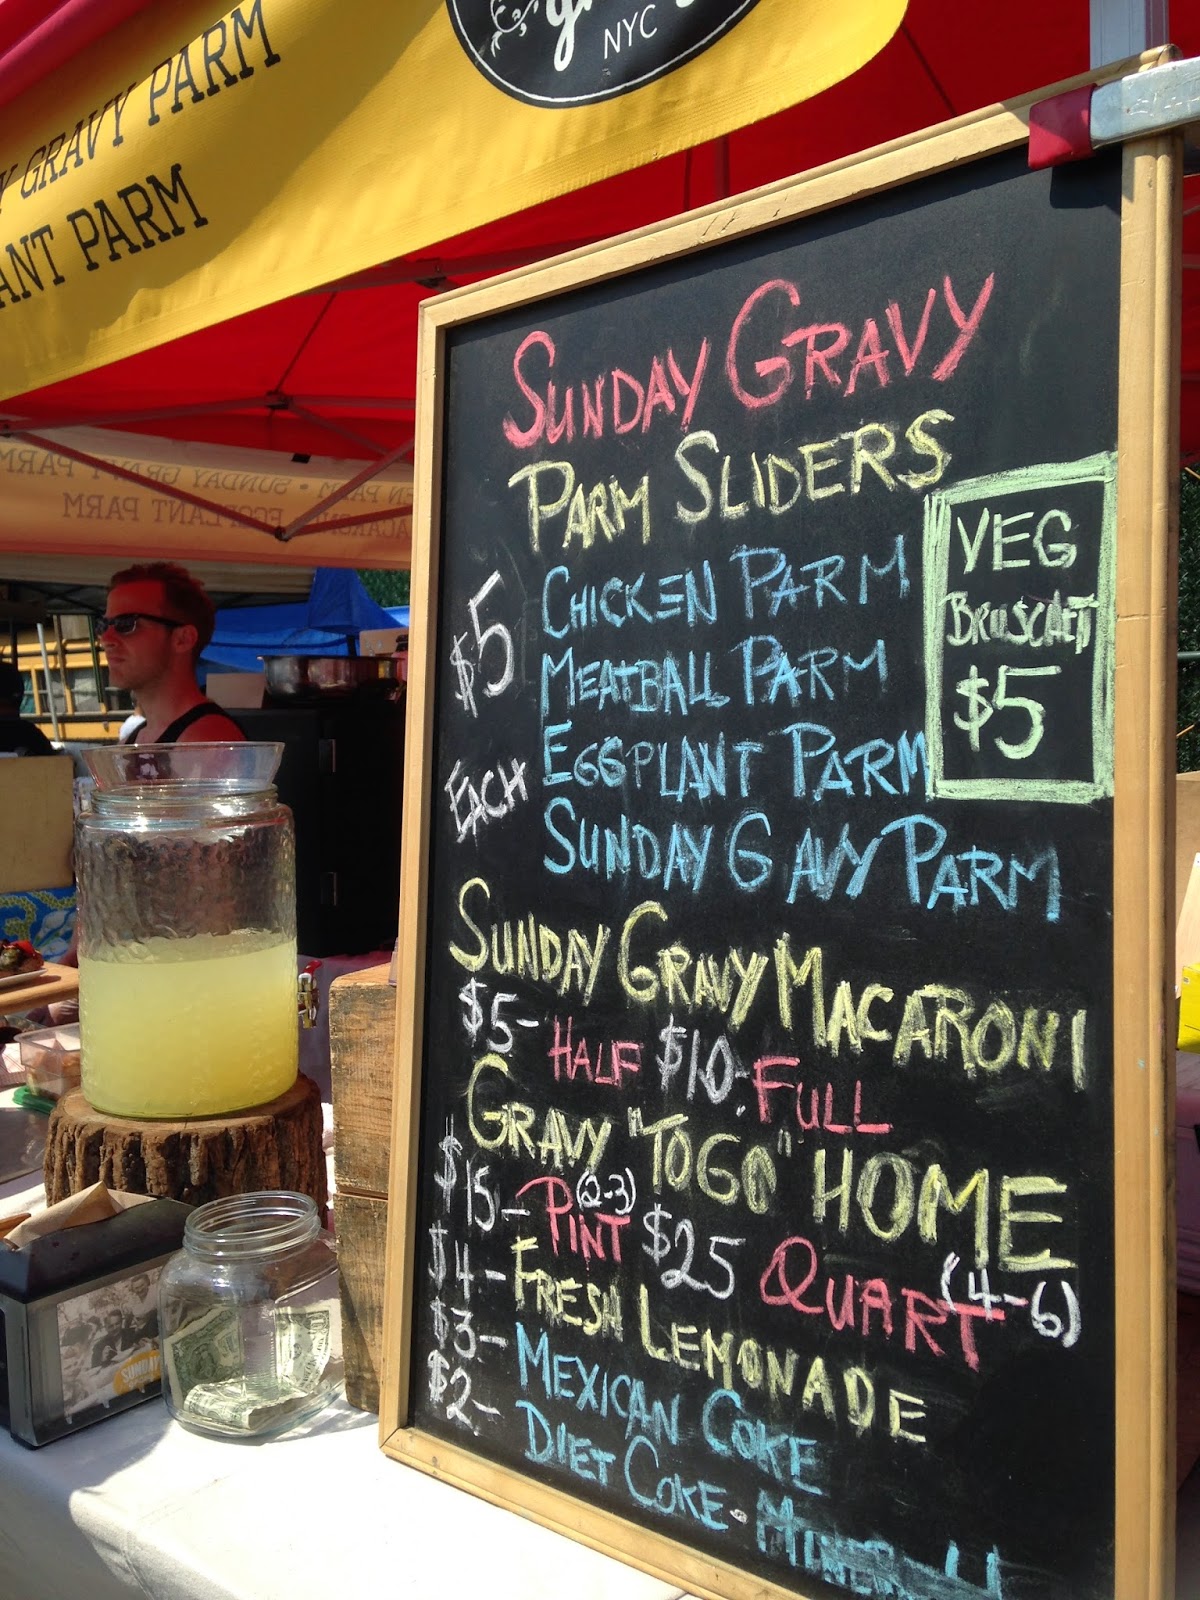 NYC
GRAVY PARM
ANT PARM
SUNDAY GRAVY
PARM SLIDERS
$5 EACH
CHICKEN PARM
MEATBALL PARM
EGGPLANT PARM
SUNDAY G AVY PARM
VEG
BRUSCHETT
$5
SUNDAY GRAVY MACARONI
$5- HALF $10- FULL
GRAVY "TO GO" HOME
$15- PINT (2-3) $25 QUART (4-6)
$4- FRESH LEMONADE
$3- MEXICAN COKE
$2- DIET COKE -
EN PARM • SUNDAY GRAVY PARM
MACARONI EGGPLANT PARM
SUNDAY